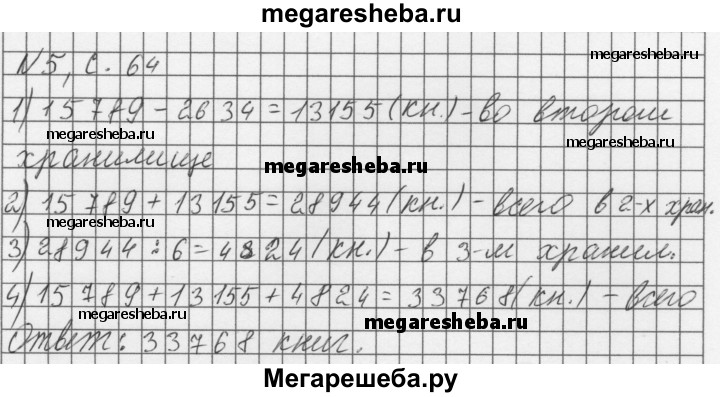 megaresheba.ru
N5, с. 64
megaresheba.ru
1) 15789 - 2634 = 13155 (кн.) - во втором
megaresheba.ru
megaresheba.ru
хранилище
megaresheba.ru
2) 15789 + 13155 = 28944 (кн.) - всего в 2-х хран.
megaresheba.ru
3) 28944 : 6 = 4824 (кн.) - в 3-м хранил.
megaresheba.ru
4) 15789 + 13155 + 4824 = 33768 (кн.) - всего
megaresheba.ru
Ответ: 33768 книг.
Мегарешеба.ру